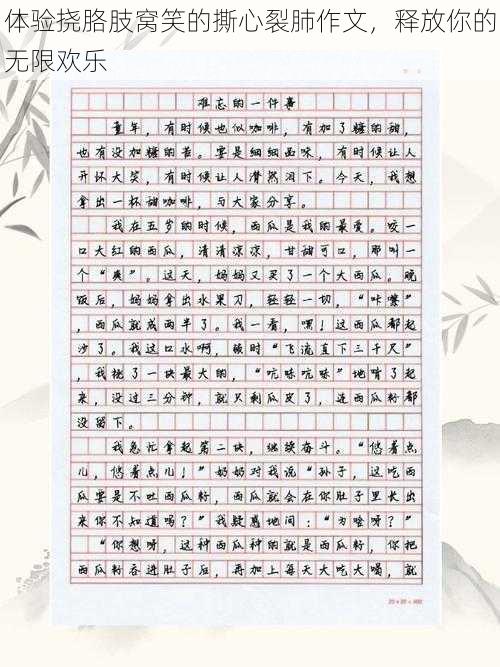 体验挠胳肢窝笑的撕心裂肺作文，释放你的
无限欢乐
难忘的一件事
童年，有时候也似咖啡，有加了糖的甜，
也有没加糖的苦。要是细细品味，有时候让人
开怀大笑，有时候让人潸然泪下。今天，我想
拿出一杯甜咖啡，与大家分享。
我在五岁的时候，西瓜是我的最爱。咬一
口大红的西瓜，清清凉凉，甘甜可口，那叫一
个“爽”。这天，妈妈又买了一个大西瓜。晚
饭后，妈妈拿出水果刀，轻轻一切，“咔嚓”
，西瓜就成两半了。我一看，嘿！这西瓜都起
沙了。我这口水啊，顿时“飞流直下三千尺”
，我挑了一块最大的，“吭哧吭哧”地啃了起
来，没过三分钟，就只剩瓜皮了，连西瓜籽都
没留下。
我急忙拿起第二块，继续奋斗。“悠着点
儿，悠着点儿！”奶奶对我说“孙子，这吃西
瓜要是不吐西瓜籽，西瓜就会在你肚子里长出
来你不知道吗？”我疑惑地问：“为啥呀？”
“你想呀，这种西瓜种的就是西瓜籽，你把
西瓜籽吞进肚子后，再加上每天大吃大喝，就